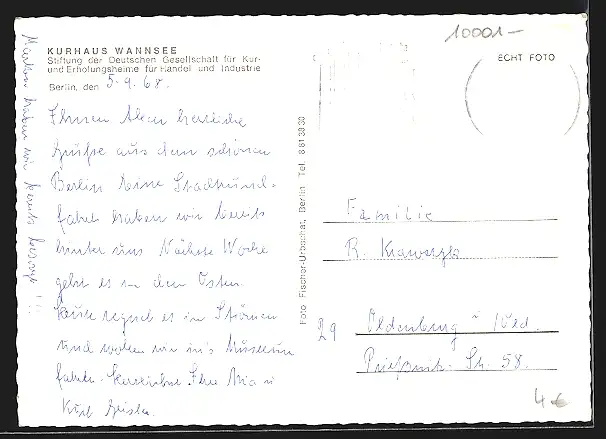 10001-
KURHAUS WANNSEE
Stiftung der Deutschen Gesellschaft für Kur-
und Erholungsheime für Handel und Industrie
Berlin, den 5.9.68.
ECHT FOTO
Ihnen Allen herzliche
Grüße aus dem schönen
Berlin. Eine Stadtrund-
fahrt haben wir bereits
hinter uns. Nächste Woche
geht es in den Osten.
Heute regnet es in Strömen
und wollen wir in's Museum
fahren. Herzlichst Ihre
Kurt
Marken haben wir besorgt !!!
Foto Fischer-Urbschat, Berlin Tel. 8 81 38 30
Familie
R.
29 Oldenburg i/Old.
Str. 58.
4 €